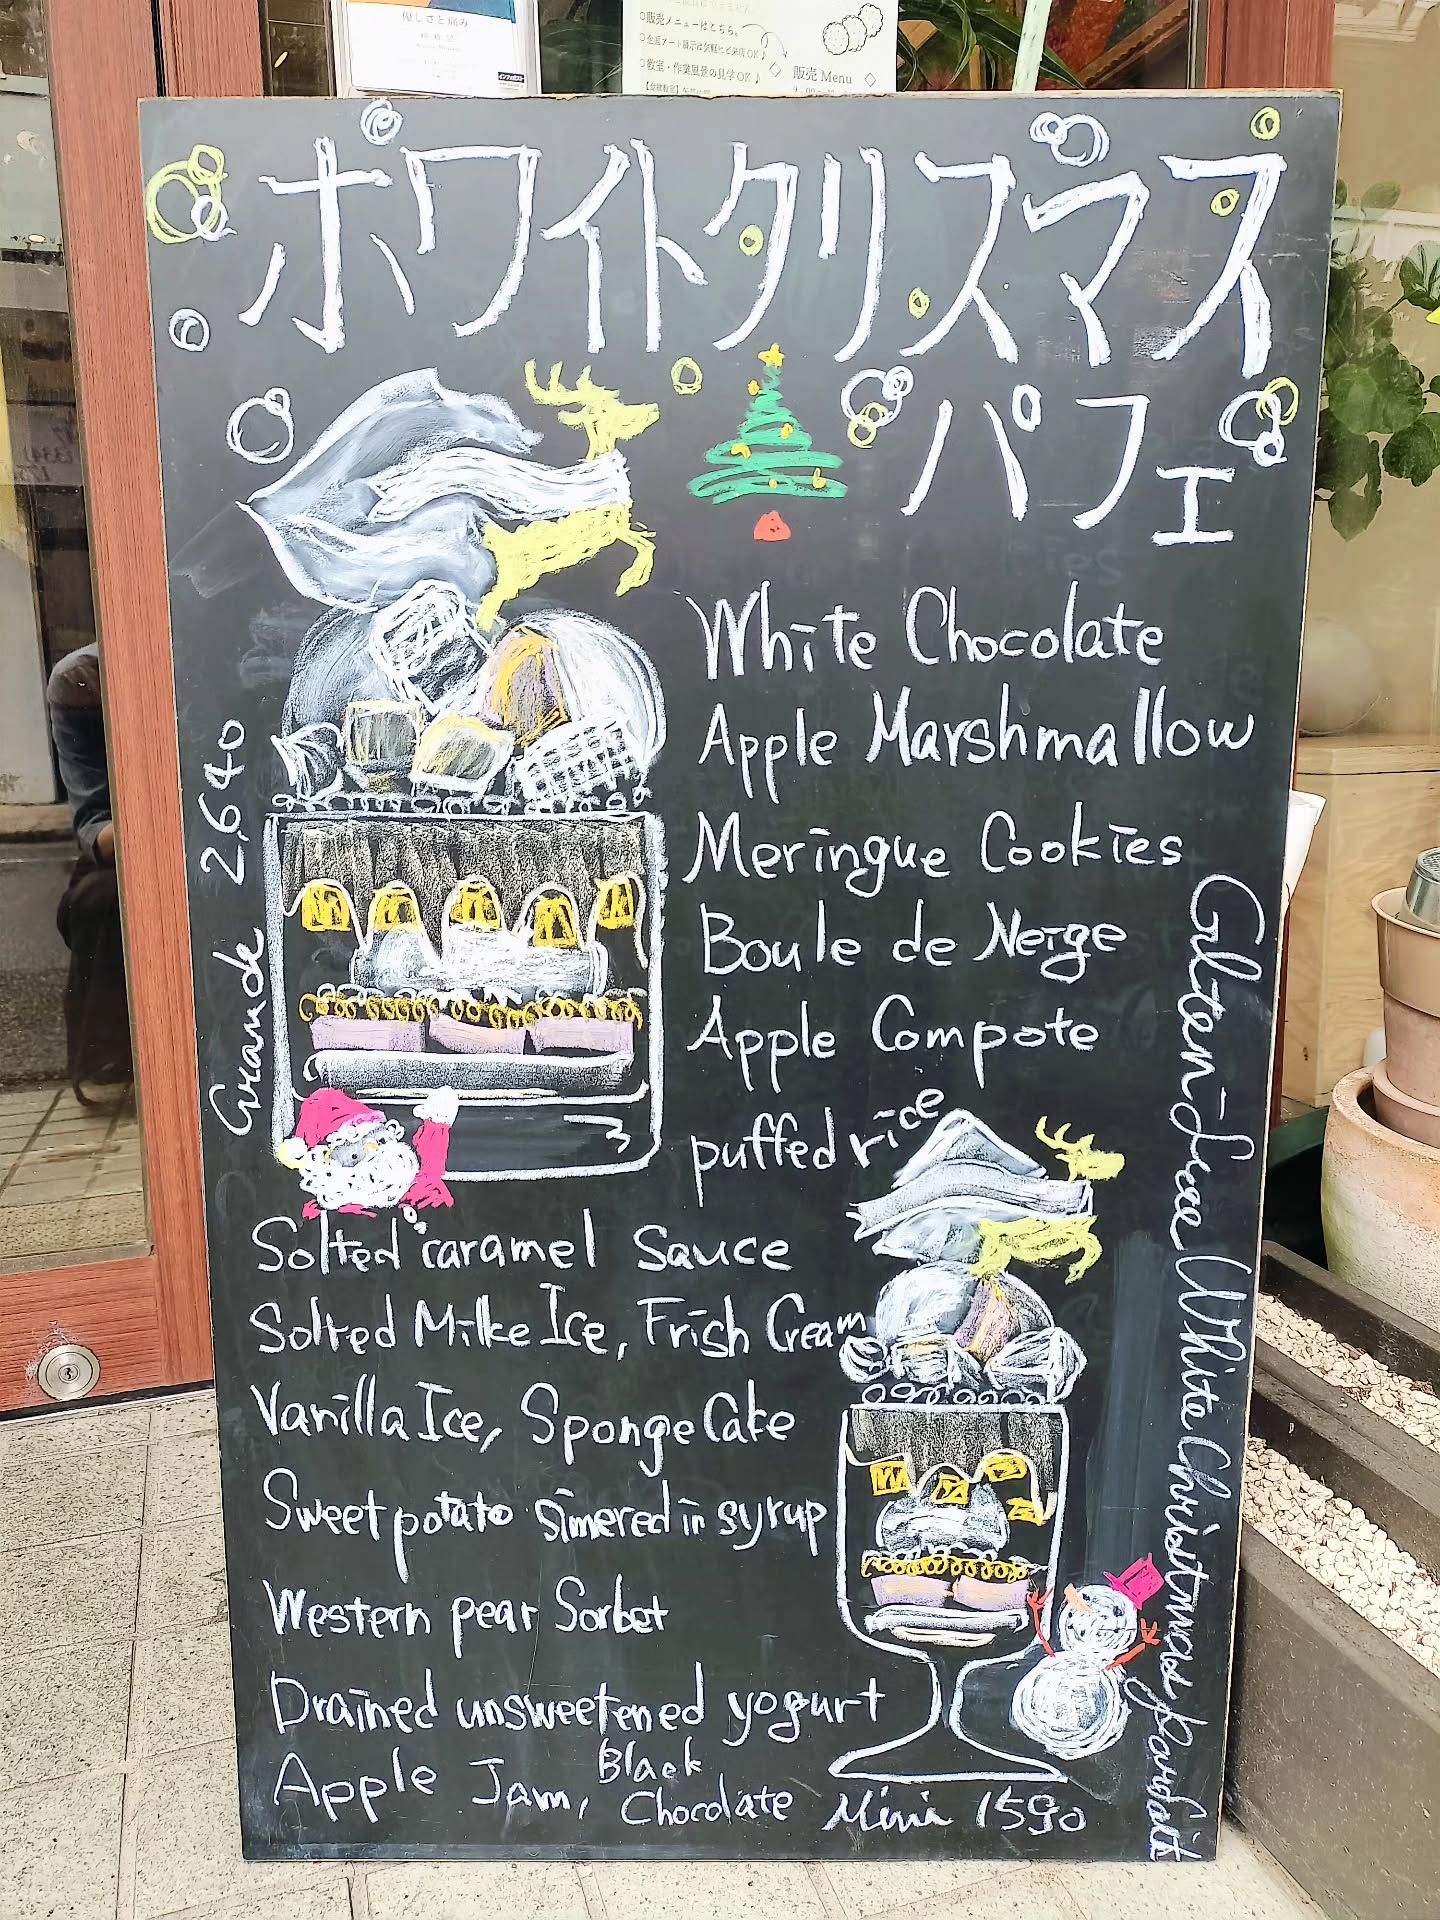 優しさと痛み
○販売メニューはこちら。
○教室・作業風景の見学OK♪
販売 Menu
ホワイトクリスマス
パフェ
White Chocolate
Apple Marshmallow
Meringue Cookies
Boule de Neige
Apple Compote
puffed rice
Grande 2,640
Solted caramel Sauce
Solted Milke Ice, Frish Cream
Vanilla Ice, Sponge Cake
Sweet potato simered in syrup
Western pear Sorbet
Drained unsweetened yogurt
Apple Jam, Black Chocolate
Mini 1590
Gluten-free White Christmas parfait